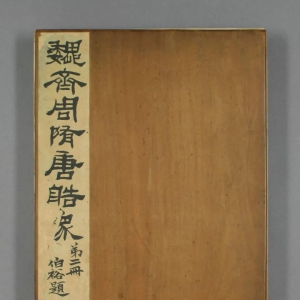 魏齊周隋唐誥象
第二冊
伯裕題